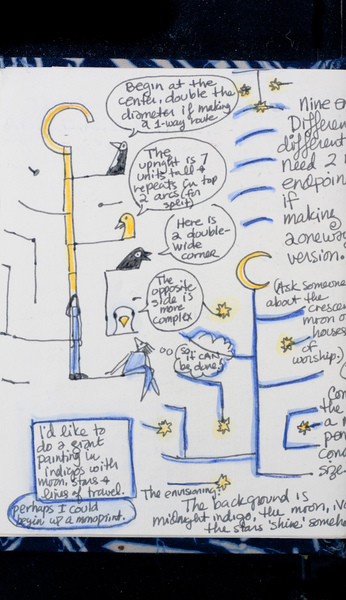 Begin at the
center, double the
diameter if making
a 1-way route
The
upright is 7
units tall &
repeats in top
2 arcs (for
split)
Here is
a double-
wide
corner
The
opposite
side is
more
complex
So it CAN
be done!
I'd like to
do a giant
painting in
indigos with
moon, stars &
lines of travel.
perhaps I could
begin w/ a monoprint.
Nine en
Differen
different
need 2
endpoin
if
making
a oneway
version.
(Ask someone
about the
crescen
moon o
houses
of
worship.)
Com
the
a m
pen
conc
size
The envisioning:
The background is
midnight indigo, the moon, iv
the stars 'shine' someho